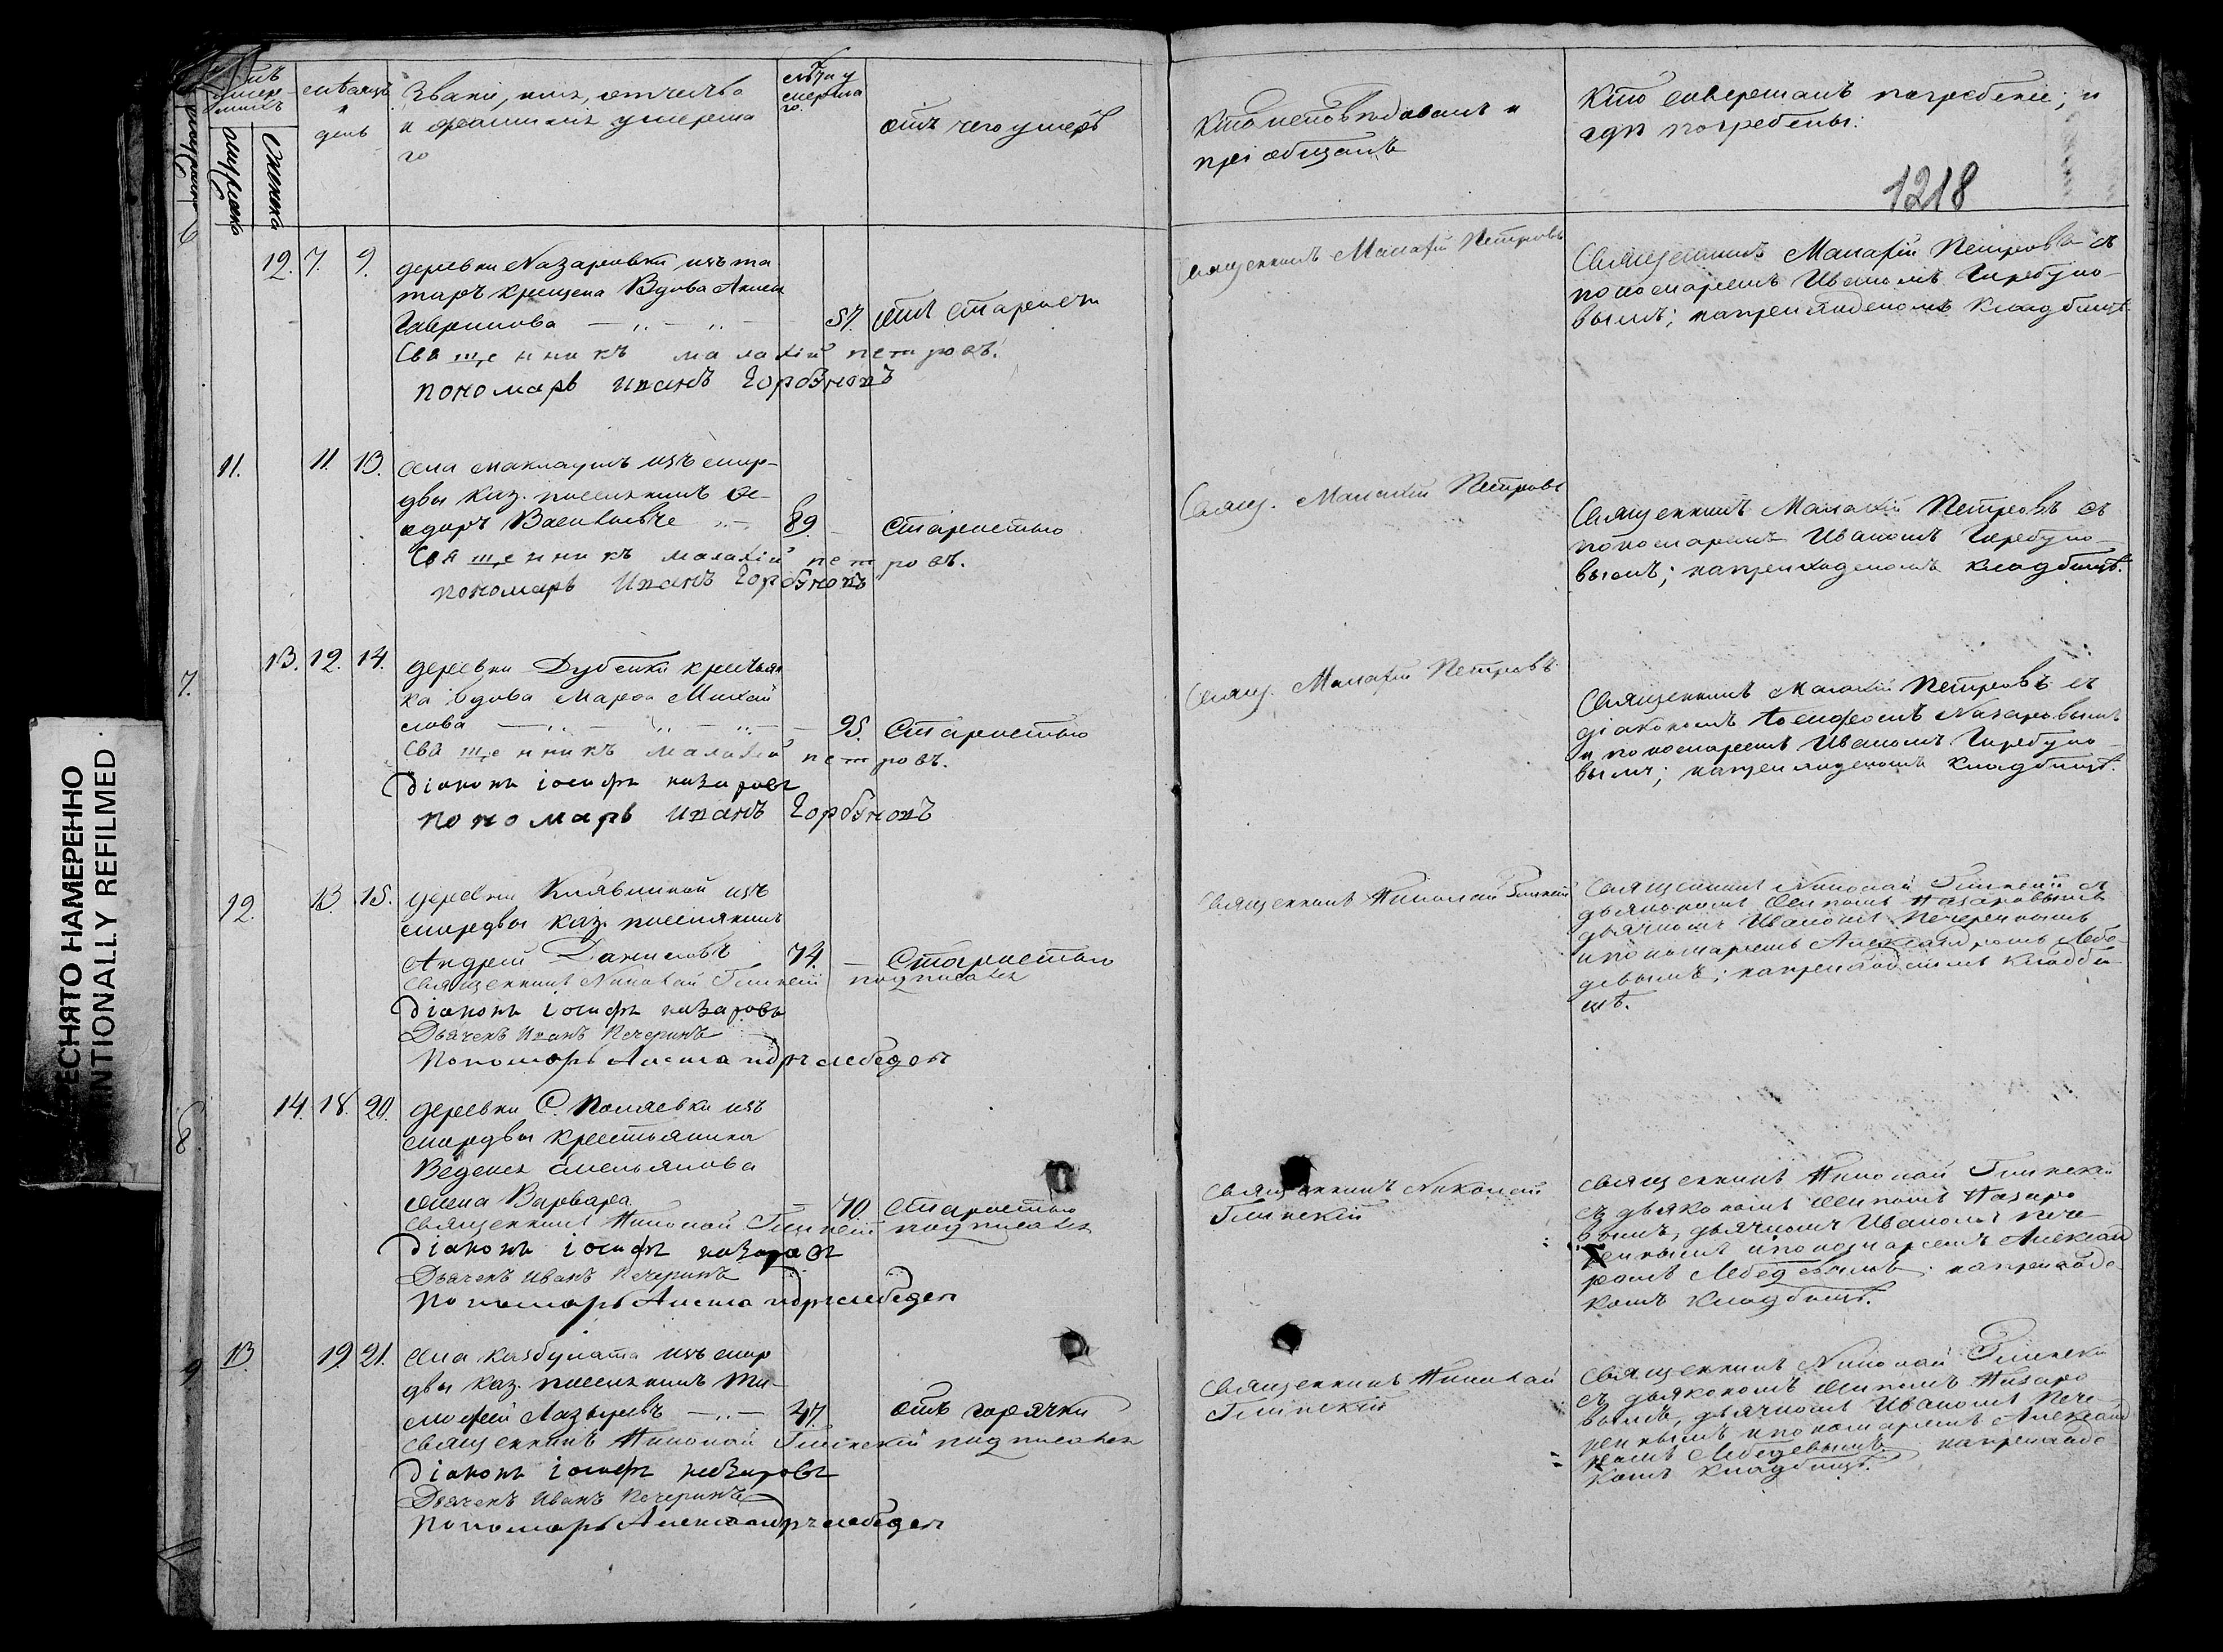 ЕСНЯТО НАМЕРЕННО
NTIONALLY REFILMED.
мѣсяцъ
и
день
Званіе, имя, отчество
и фамилія умерша
го
лѣта у
мерша
го.
отъ чего умеръ
Кто исповѣдовалъ и
пріобщалъ
Кто совершалъ погребеніе; и
гдѣ погребены:
1218
12. 7. 9.
деревни Назаровки изъ та
таръ крещена Вдова
Гаврилова
57. отъ старости
Священникъ малахій петровъ.
пономарь иванъ Горбуновъ
Священникъ Малахій Петровъ
Священникъ Малахій Петровъ съ
пономаремъ Иваномъ Горбуно-
вымъ; на приходскомъ кладбищѣ
11. 11. 13.
села маклаушъ изъ морд-
вы каз. поселянинъ Ѳе-
одоръ Васильевъ
89. старостью
Священникъ малахій петровъ.
пономарь Иванъ Горбуновъ
Свящ. Малахій Петровъ
Священникъ Малахій Петровъ съ
пономаремъ Иваномъ Горбуно-
вымъ; на приходскомъ кладбищѣ.
7.
13. 12. 14.
деревни Дубенки крестьян
ка вдова Марѳа Михай
лова
95. Старостью
Священникъ малахій петровъ.
діаконъ іосифъ назаровъ
пономарь иванъ Горбуновъ
Свящ. Малахій Петровъ
Священникъ Малахій Петровъ съ
діакономъ Іосифомъ Назаровымъ
и пономаремъ Иваномъ Горбуно-
вымъ; на приходскомъ кладбищѣ.
12. 13. 15.
деревни Клявлиной изъ
мордвы каз. поселянинъ
Андрей Даниловъ
74. Старостью
Священникъ Николай Глинскій подписался
діаконъ іосифъ назаровъ
Дьячекъ Иванъ Печеринъ
Пономарь Александръ лебедев
Священникъ Николай Глинскій
Священникъ Николай Глинскій съ
дьякономъ Осипомъ Назаровымъ
дьячкомъ Иваномъ Печеринымъ
и пономаремъ Александромъ Лебе-
девымъ; на приходскомъ кладби-
щѣ.
8
14. 18. 20.
мордвы крестьянина
Емельянова
жена Варвара
70. Старостью
священникъ Николай Глинскій подписался
діаконъ іосифъ назаровъ
Дьячекъ Иванъ Печеринъ
Пономарь Александръ лебедев
Священникъ Николай
Глинскій
священникъ Николай Глинскій
съ дьякономъ Осипомъ Назаро
вымъ, дьячкомъ Иваномъ Пече
ринымъ и пономаремъ Александ
ромъ Лебедевымъ; на приходс
комъ кладбищѣ.
9
13. 19. 21.
села казбулата изъ морд
вы каз. поселянинъ Ти-
моѳей Лазаревъ
47. отъ горячки
священникъ Николай Глинскій подписался
діаконъ іосифъ назаровъ
Дьячекъ Иванъ Печеринъ
Пономарь Александръ лебедев
Священникъ Николай
Глинскій
священникъ Николай Глинскі
съ дьякономъ Осипомъ Назаро
вымъ, дьячкомъ Иваномъ Пече
ринымъ и пономаремъ Александ
ромъ Лебедевымъ; на приходс
комъ кладбищѣ.